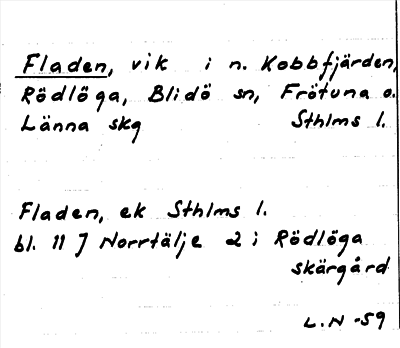 Fladen, vik i n. Kobbfjärden,
Rödlöga, Blidö sn, Frötuna o.
Länna skg Sthlms l.
Fladen, ek Sthlms l.
bl. 11 J Norrtälje 2 i Rödlöga
skärgård
L.N -59